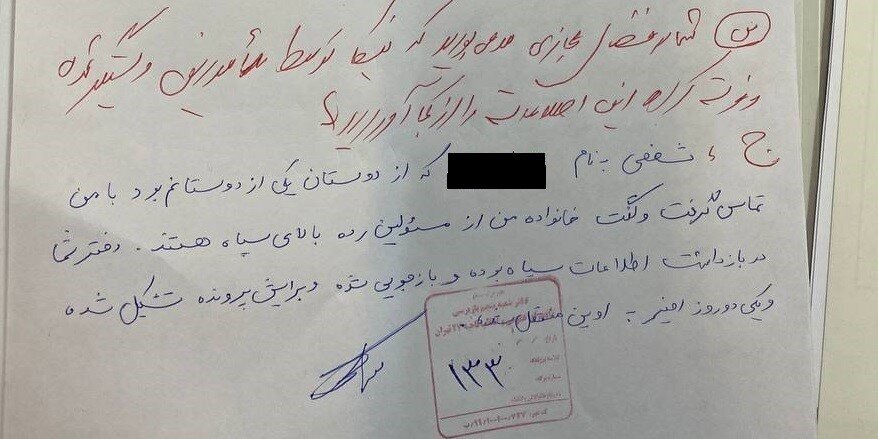 س) شما در فضای مجازی مدعی بودید که نیکا توسط مأمورین دستگیر شده
و فوت کرده این اطلاعات را از کجا آوردید؟
ج ، شخصی به نام که از دوستان یکی از دوستانم بود با من
تماس گرفت و گفت خانواده من از مسئولین رده بالای سپاه هستند. دختر شما
در بازداشت اطلاعات سپاه بوده و بازجویی شده و برایش پرونده تشکیل شده
و یکی دو روز اخیر به اوین منتقل شده
۱۳۳۰